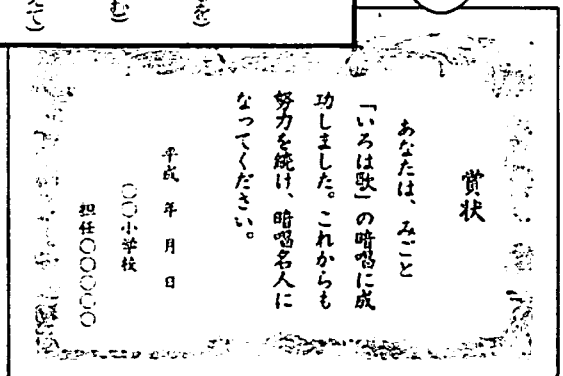 を)
む)
えて)
賞状
あなたは、みごと
「いろは歌」の暗唱に成
功しました。これからも
努力を続け、暗唱名人に
なってください。
平成　年　月　日
○○小学校
担任○○○○○